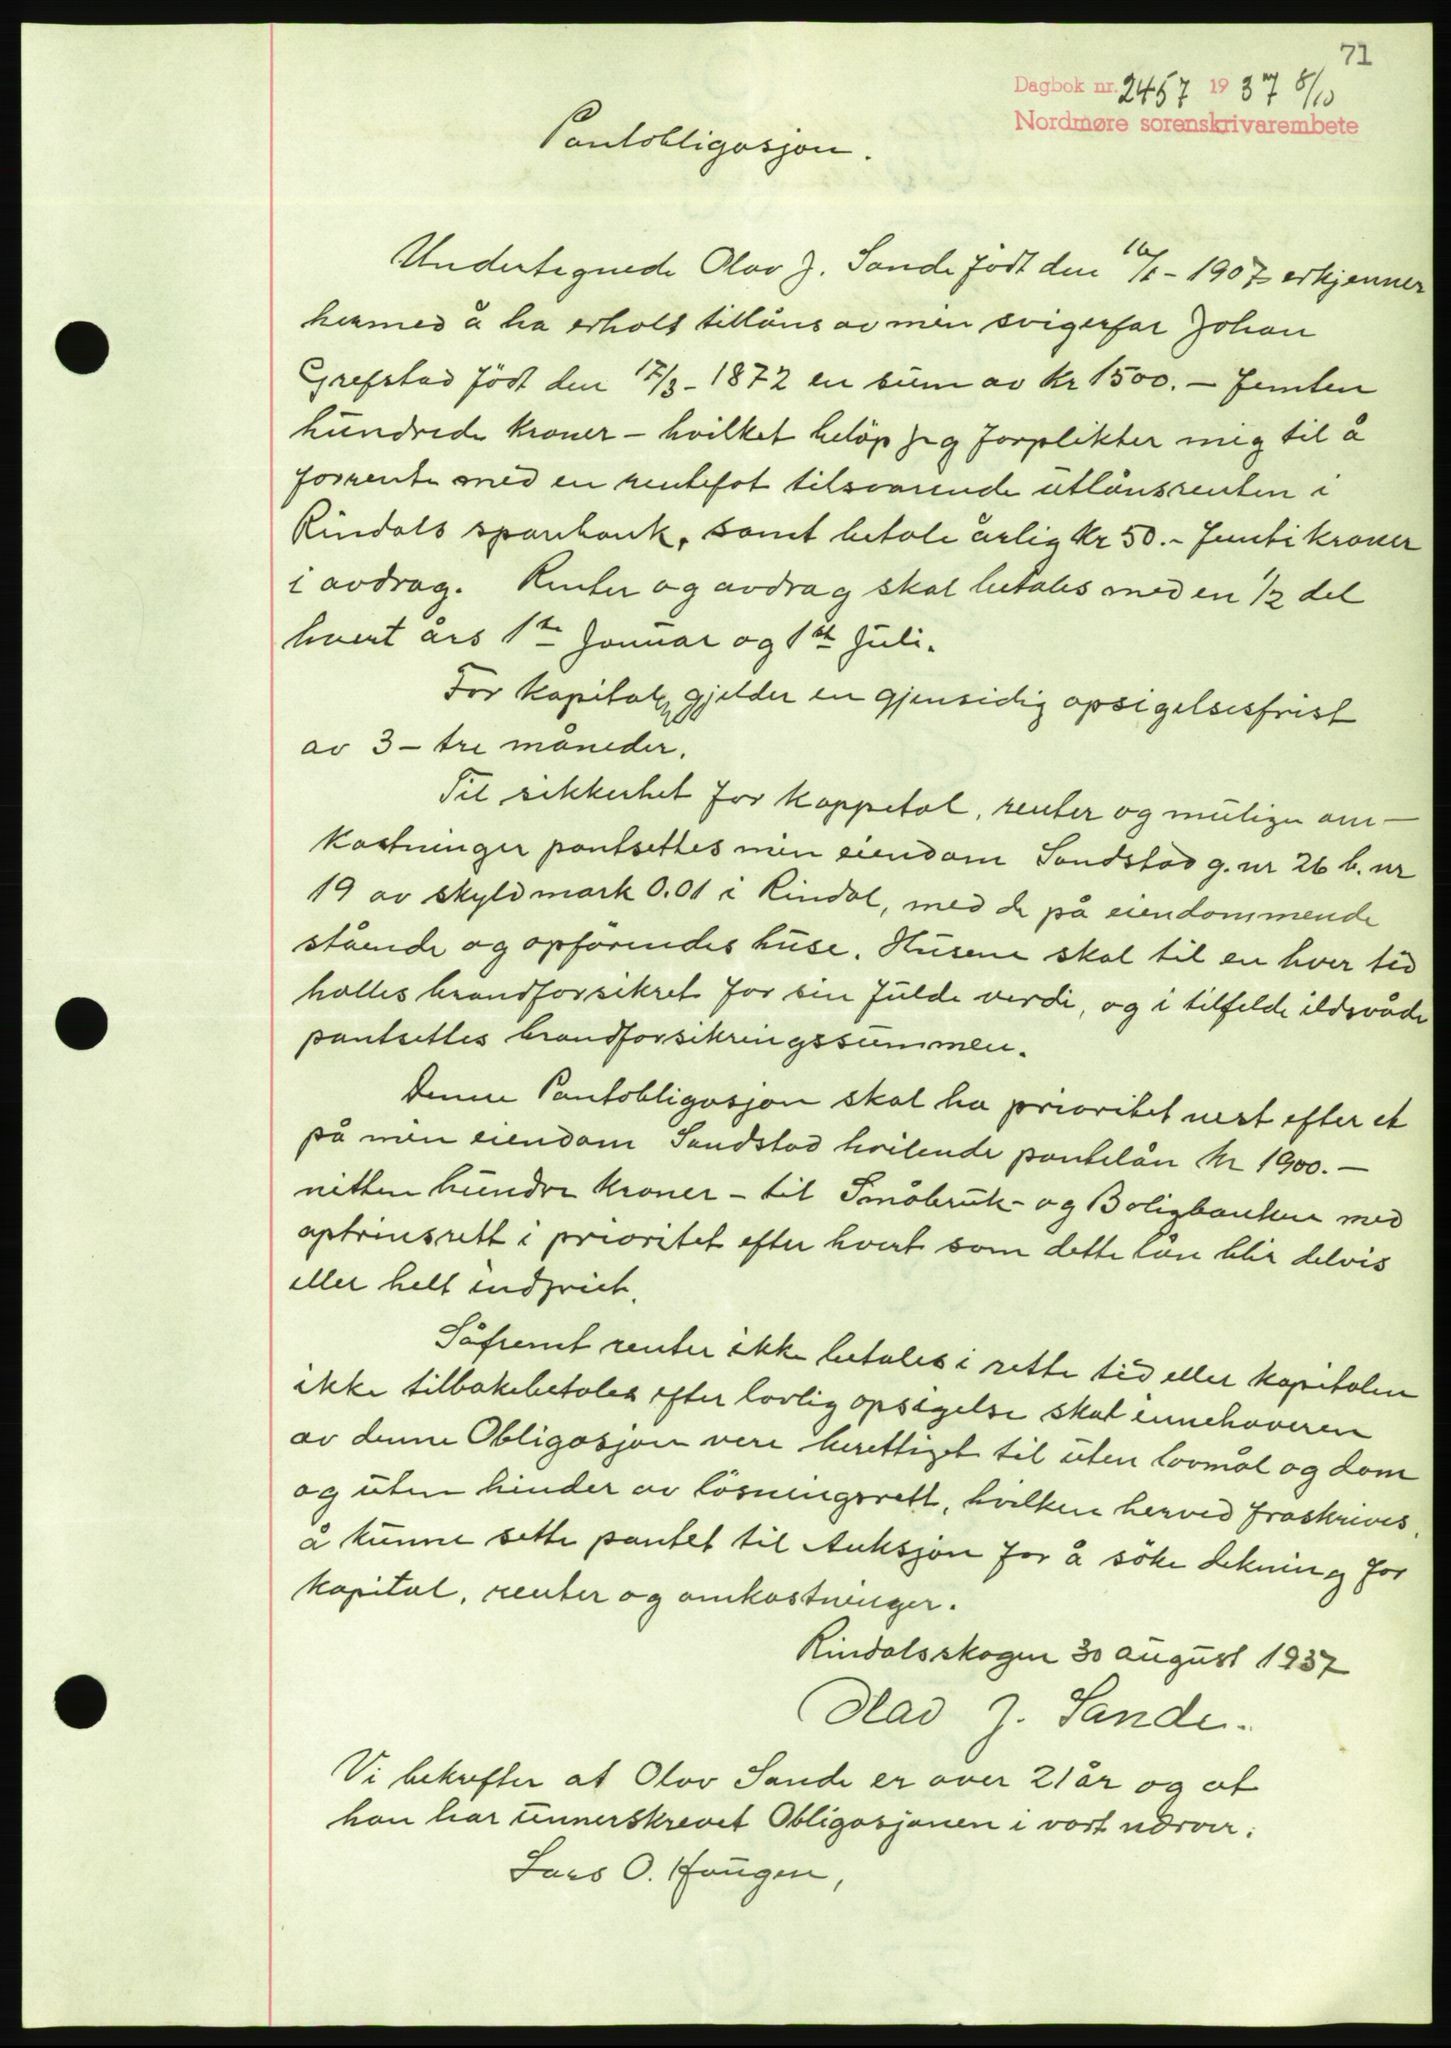 71
Dagbok nr. 2457 1937 8/10
Nordmøre sorenskrivarembete
Pantobligasjon.
Undertegnede Olav J. Sande födt den 16/1 - 1907 erkjenner
hermed å ha erholt tillåns av min svigerfar Johan
Grefstad födt den 17/3 - 1872 en sum av kr 1500. - femten
hundrede kroner - hvilket belöp jeg forplikter mig til å
forrente med en rentefot tilsvarende utlånsrenten i
Rindals sparebank, samt betale årlig kr 50. - femti kroner
i avdrag. Renter og avdrag skal betales med en 1/2 del
hvert års 1ste Januar og 1ste Juli.
For kapitalen gjelder en gjensidig opsigelsesfrist
av 3 - tre måneder.
Til sikkerhet for kappetal, renter og mulige om-
kostninger pantsettes min eiendom Sandstad g. nr 26 b. nr
19 av skyld mark 0.01 i Rindal, med de på eiendommende
stående og opförendes huse. Husene skal til en hver tid
holles brandforsikret for sin fulde verdi, og i tilfelde ildsvåde
pantsettes brandforsikringssummen.
Denne Pantobligasjon skal ha prioritet nest efter et
på min eiendom Sandstad hvilende pantelån kr 1900. -
nitten hundre kroner - til Småbruk- og Boligbanken med
optrinsrett i prioritet efter hvert som dette lån blir delvis
eller helt indfriet.
Såfremt renter ikke betales i rette tid eller kapitalen
ikke tilbakebetales efter lovlig opsigelse skal innehaveren
av denne Obligasjon vere berettiget til uten lovmål og dom
og uten hinder av lösningsrett, hvilken herved fraskrives,
å kunne sette pantet til Auksjon for å söke dekning for
kapital, renter og omkostninger.
Rindalsskogen 30 august 1937
Olav J. Sande.
Vi bekrefter at Olav Sande er over 21 år og at
han har unnerskrevet Obligasjonen i vort nærver.
Lars O. Haugen,